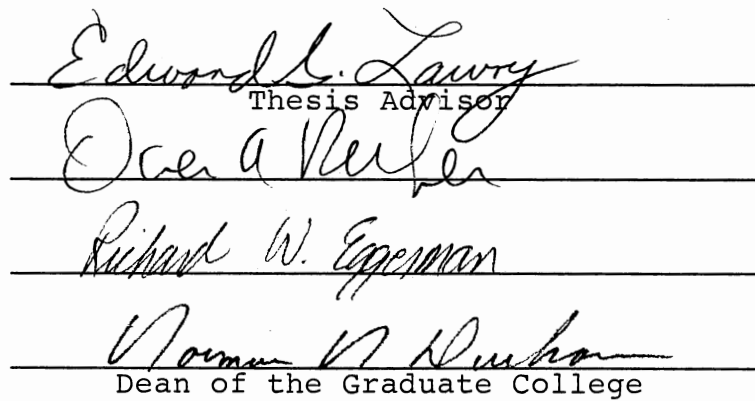 Edward G. Lawry
Thesis Advisor
Richard W. Eggerman
Norman N Durham
Dean of the Graduate College